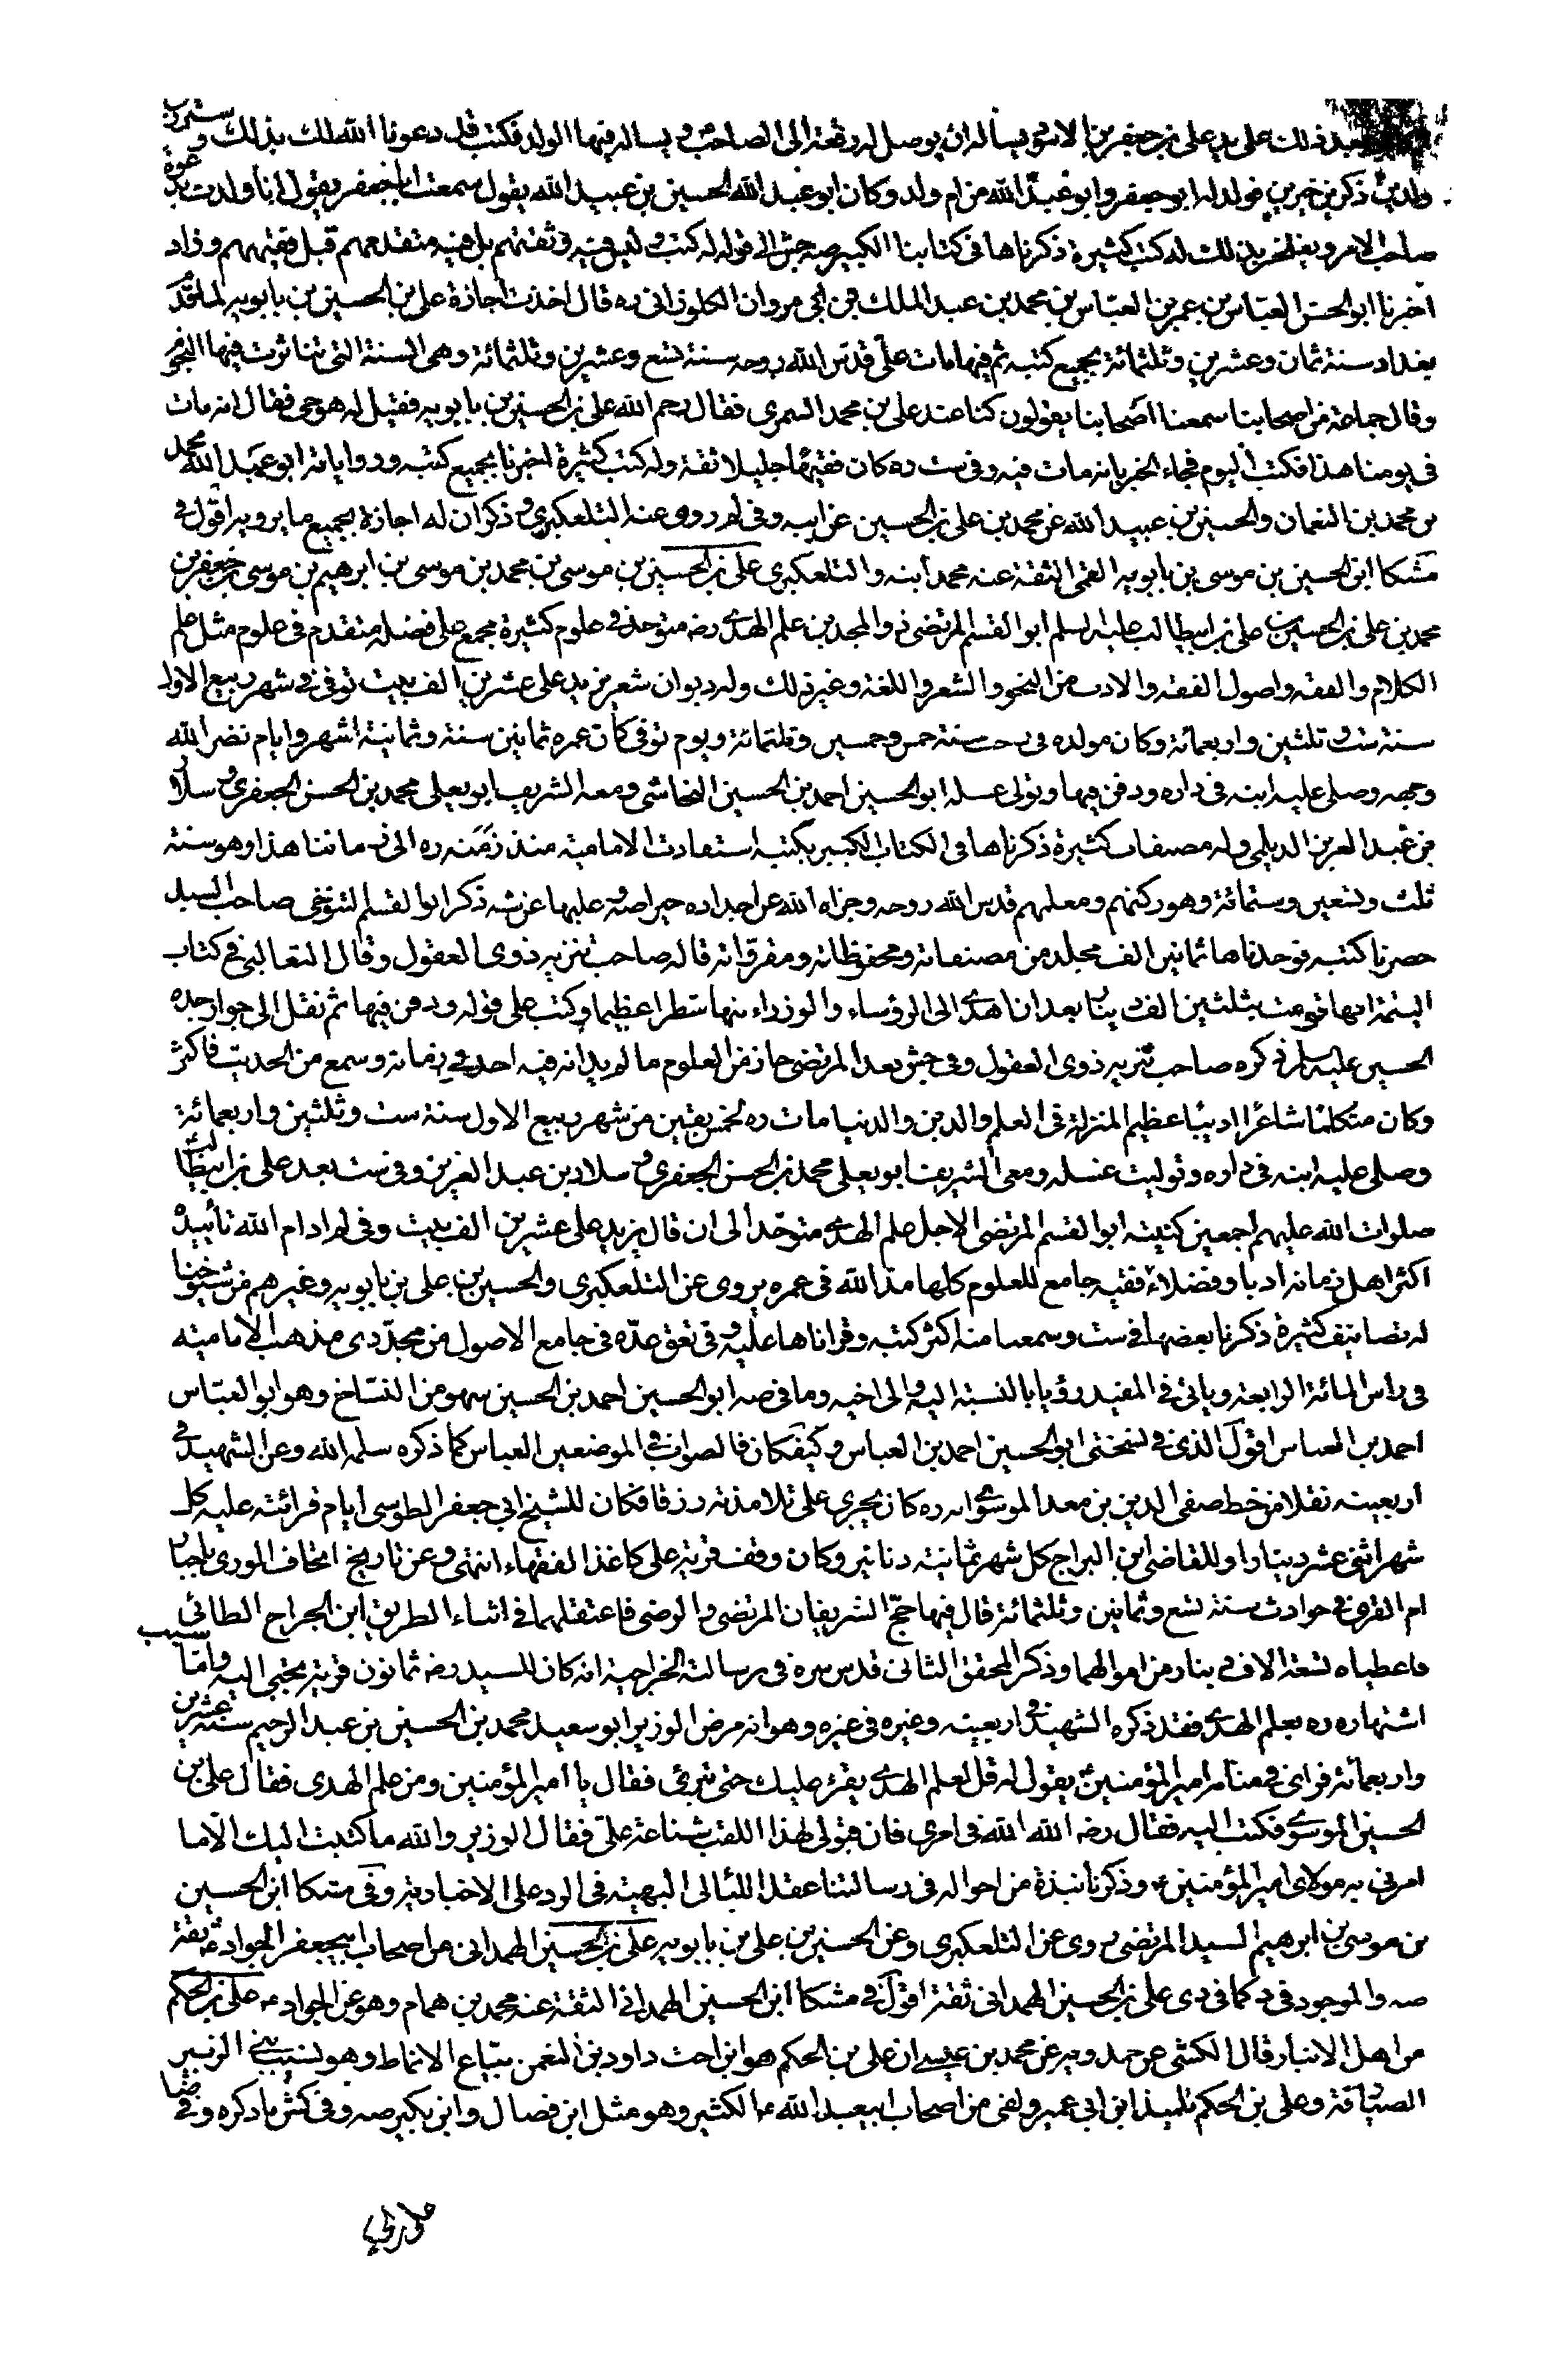 بعد ذلك على يد على بن جعفر بن الاسود يساله ان يوصل له رقعة الى الصاحب ع و يساله فيها الولد فكتب قد دعونا الله لك بذلك و سترزق
ولدين ذكرين خيرين فولد له ابو جعفر و ابو عبد الله من ام ولد و كان ابو عبد الله الحسين بن عبيد الله يقول سمعت ابا جعفر يقول انا ولدت بدعوة
صاحب الامر و يفتخر بذلك له كتب كثيرة ذكرناها فى كتابنا الكبير صه جش الى قوله له كتب و ليس فيه و ثقتهم بل فيه متقدمهم قبل فقيههم و زاد
اخبرنا ابو الحسن العباس بن عمر بن العباس بن محمد بن عبد الملك بن ابى مروان الكلوذانى ره قال اخذت اجازة على بن الحسين بن بابويه لما قدم
بغداد سنة ثمان و عشرين و ثلثمائة بجميع كتبه ثم فيها مات على قدس الله روحه سنة تسع و عشرين و ثلثمائة و هى السنة التى تناثرت فيها النجوم
و قال جماعة من اصحابنا سمعنا اصحابنا يقولون كنا عند على بن محمد السمرى فقال رحم الله على بن الحسين بن بابويه فقيل له هو حى فقال انه مات
فى يومنا هذا فكتب اليوم فجاء الخبر بانه مات فيه و فى ست ره كان فقيها جليلا ثقة و له كتب كثيرة اخبرنا بجميع كتبه و رواياته ابو عبد الله محمد
بن محمد بن النعمان و الحسين بن عبيد الله عن محمد بن على بن الحسين عن ابيه و فى لم روى عنه التلعكبرى و ذكر ان له اجازة بجميع ما يرويه اقول فى
مشكا ابن الحسين بن موسى بن بابويه القمى الثقة عنه محمد ابنه و التلعكبرى على بن الحسين بن موسى بن محمد بن موسى بن ابرهيم بن موسى بن جعفر بن
محمد بن على بن الحسين بن على بن ابيطالب عليه السلم ابو القسم المرتضى ذو المجدين علم الهدى رضه متوحد فى علوم كثيرة مجمع على فضله متقدم فى علوم مثل علم
الكلام و الفقه و اصول الفقه و الادب من النحو و الشعر و اللغة و غير ذلك و له ديوان شعر يزيد على عشرين الف بيت توفى فى شهر ربيع الاول
سنة ست و ثلثين و اربعمائة و كان مولده فى رجب سنة خمس و خمسين و ثلثمائة و يوم توفى كان عمره ثمانين سنة و ثمانية اشهر و ايام نضر الله
وجهه و صلى عليه ابنه فى داره و دفن فيها و تولى غسله ابو الحسين احمد بن الحسين النجاشى و معه الشريف ابو يعلى محمد بن الحسن الجعفرى و سلار
بن عبد العزيز الديلمى و له مصنفات كثيرة ذكرناها فى الكتاب الكبير بكتبه استفادت الامامية منذ زمنه ره الى زماننا هذا و هو سنة
ثلث و تسعين و ستمائة و هو ركنهم و معلمهم قدس الله روحه و جزاه الله عن اجداده خيرا صه عليها عن شه ذكر ابو القسم التنوخى صاحب السيد
حصرنا كتبه فوجدناها ثمانين الف مجلد من مصنفاته و محفوظاته و مقرواته قاله صاحب تنزيه ذوى العقول و قال الثعالبى فى كتاب
اليتيمة انها قومت بثلثين الف دينار بعد ان اهدى الى الرؤساء و الوزراء منها شطرا عظيما و كتب على قوله و دفن فيها ثم نقل الى جوار جده
الحسين عليه السلم ذكره صاحب تنزيه ذوى العقول و فى جش بعد المرتضى حاز من العلوم ما لم يدانه فيه احد فى زمانه و سمع من الحديث فاكثر
و كان متكلما شاعرا اديبا عظيم المنزلة فى العلم و الدين و الدنيا مات ره لخمس بقين من شهر ربيع الاول سنة ست و ثلثين و اربعمائة
و صلى عليه ابنه فى داره و توليت غسله و معى الشريف ابو يعلى محمد بن الحسن الجعفرى و سلار بن عبد العزيز و فى ست بعد على بن ابيطالب
صلوات الله عليهم اجمعين كنيته ابو القسم المرتضى الاجل علم الهدى متوحد الى ان قال يزيد على عشرين الف بيت و فى لم ادام الله تاييده
اكثر اهل زمانه ادبا و فضلا فقيه جامع للعلوم كلها مد الله فى عمره يروى عن التلعكبرى و الحسين بن على بن بابويه و غيرهم من شيوخنا
له تصانيف كثيرة ذكرنا بعضها فى ست و سمعنا منه اكثر كتبه و قراناها عليه و فى تعق عده فى جامع الاصول من مجددى مذهب الامامية
فى راس المائة الرابعة و ياتى فى المفيد رؤيا بالنسبة اليه و الى اخيه و ما فى صه ابو الحسين احمد بن الحسين سهو من النساخ و هو ابو العباس
احمد بن العباس اقول الذى فى نسختى ابو الحسين احمد بن العباس و كيف كان فالصواب فى الموضعين العباس كما ذكره سلمه الله و عن الشهيد فى
اربعينه نقلا من خط صفى الدين بن معد الموسوى انه ره كان يجرى على تلامذته رزقا فكان للشيخ ابى جعفر الطوسى ايام قرائته عليه كل
شهر اثنى عشر دينارا و للقاضى ابن البراج كل شهر ثمانية دنانير و كان وقف قرية على كاغذ الفقهاء انتهى و عن تاريخ اتحاف الورى باخبار
ام القرى فى حوادث سنة تسع و ثمانين و ثلثمائة قال فيها حج الشريفان المرتضى و الرضى فاعتقلهما فى اثناء الطريق ابن الجراح الطائى
فاعطياه تسعة الاف دينار من اموالهما و ذكر المحقق الثانى قدس سره فى رسالته الخراجية انه كان للسيد رضه ثمانون قرية يجبى اليه و اما سبب
اشتهاره ره بعلم الهدى فقد ذكره الشهيد فى اربعينه و غيره فى غيره و هو انه مرض الوزير ابو سعيد محمد بن الحسين بن عبد الرحيم سنة عشرين
و اربعمائة فراى فى منامه امير المؤمنين ع يقول له قل لعلم الهدى يقرء عليك حتى تبرئ فقال يا امير المؤمنين و من علم الهدى فقال على بن
الحسين الموسوى فكتب اليه فقال رضه الله الله فى امرى فان قبولى لهذا اللقب شناعة على فقال الوزير و الله ما كتبت اليك الا ما
امرنى به مولاى امير المؤمنين ع و ذكرنا نبذة من احواله فى رسالتنا عقد اللئالى البهية فى الرد على الاخبارية و فى مشكا ابن الحسين
بن موسى بن ابرهيم السيد المرتضى روى عن التلعكبرى و عن الحسين بن على بن بابويه على بن الحسين الهمدانى من اصحاب ابيجعفر الجواد ع ثقة
صه و الموجود فى د كما فى دى على بن الحسين الهمدانى ثقة اقول فى مشكا ابن الحسين الهمدانى الثقة عنه محمد بن همام و هو عن الجواد ع على بن الحكم
من اهل الانبار قال الكشى عن حمدويه عن محمد بن عيسى ان على بن الحكم هو ابن اخت داود بن النعمن بياع الانماط و هو نسيب بنى الزبير
الصيارفة و على بن الحكم تلميذ ابن ابى عمير و لقى من اصحاب ابيعبد الله ع الكثير و هو مثل ابن فضال و ابن بكير صه و فى كش ما ذكره و فى ضا